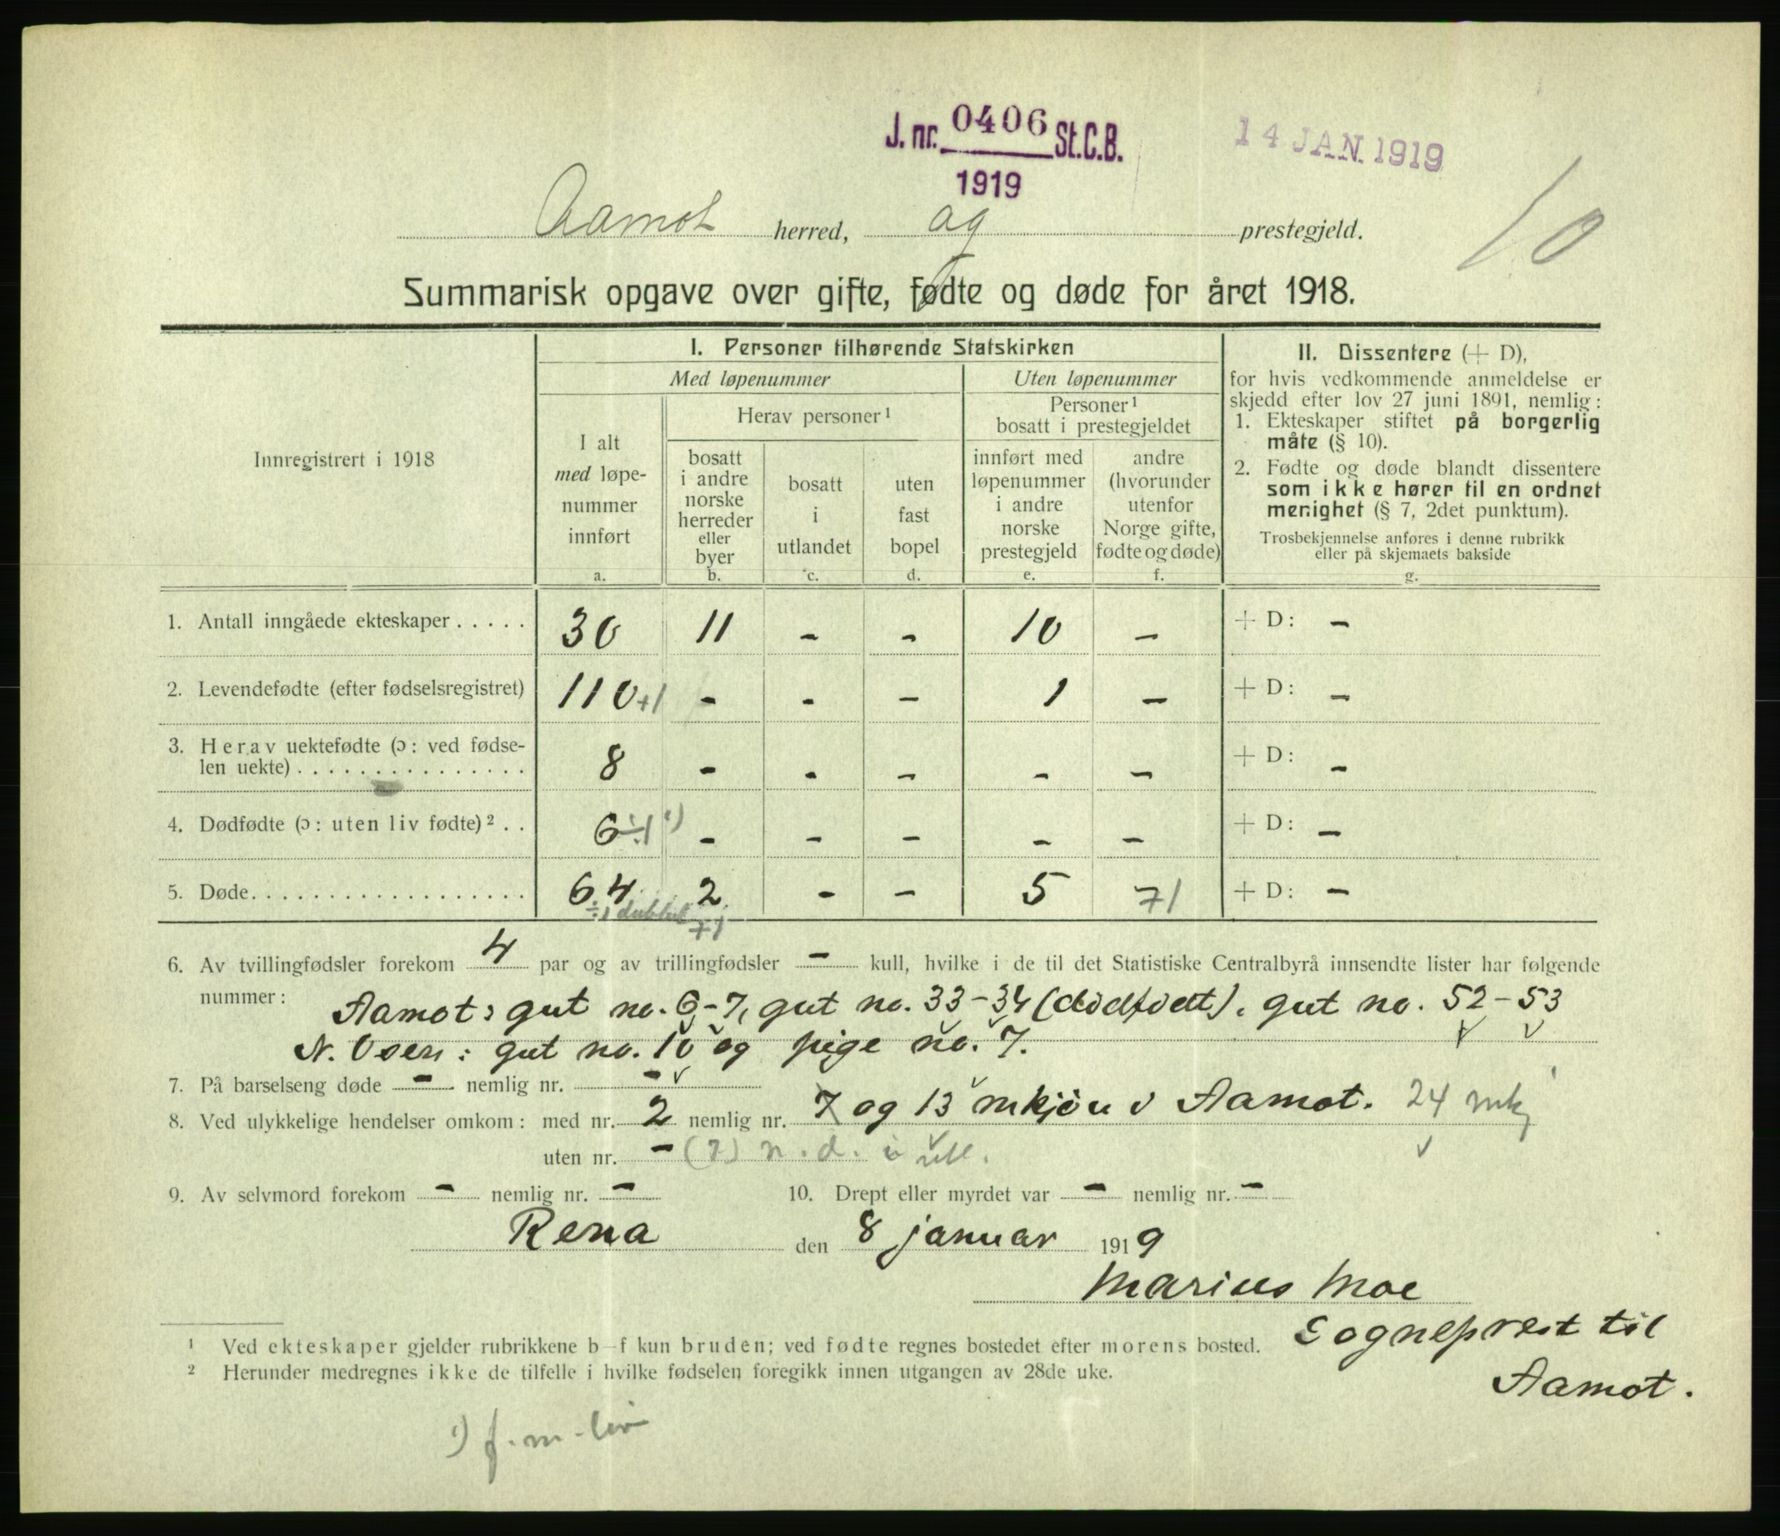 J. nr. 0406 St.C.B.
1919
14 JAN. 1919
10
Aamot herred, og prestegjeld.
Summarisk opgave over gifte, fødte og døde for året 1918.
Innregistrert i 1918
I. Personer tilhørende Statskirken
Med løpenummer
Uten løpenummer
I alt
med løpe-
nummer
innført
a.
Herav personer ¹
bosatt
i andre
norske
herreder
eller
byer
b.
bosatt
i
utlandet
c.
uten
fast
bopel
d.
Personer ¹
bosatt i prestegjeldet
innført med
løpenummer
i andre
norske
prestegjeld
e.
andre
(hvorunder
utenfor
Norge gifte,
fødte og døde)
f.
II. Dissentere (+ D),
for hvis vedkommende anmeldelse er
skjedd efter lov 27 juni 1891, nemlig:
1. Ekteskaper stiftet på borgerlig
måte (§ 10).
2. Fødte og døde blandt dissentere
som ikke hører til en ordnet
menighet (§ 7, 2det punktum).
Trosbekjennelse anføres i denne rubrikk
eller på skjemaets bakside
g.
1. Antall inngåede ekteskaper . . . . . 30 11 - - 10 - + D: -
2. Levendefødte (efter fødselsregistret) 110 +1 - - - 1 - + D: -
3. Herav uektefødte (ɔ: ved fødse-
len uekte) . . . . . . . . . . . . . . . 8 - - - - - + D: -
4. Dødfødte (ɔ: uten liv fødte) ² . . 6 ÷1 ¹) - - - - - + D: -
5. Døde. . . . . . . . . . . . . . . . . . 64 2 - - 5 71 + D: -
÷1 dubbel 71
6. Av tvillingfødsler forekom 4 par og av trillingfødsler - kull, hvilke i de til det Statistiske Centralbyrå innsendte lister har følgende
nummer: Aamot: gut no. 6-7, gut no. 33-34 (dødfødt), gut no. 52-53
N. Osen: gut no. 10 og pige no. 7.
7. På barselseng døde - nemlig nr. -
8. Ved ulykkelige hendelser omkom: med nr. 2 nemlig nr. 7 og 13 mkjøn i Aamot. 24 mkj
uten nr. - (7) n. d. i utl.
9. Av selvmord forekom - nemlig nr. - 10. Drept eller myrdet var - nemlig nr. -
Rena den 8 januar 1919
Marius Moe
Sogneprest til
Aamot.
¹ Ved ekteskaper gjelder rubrikkene b—f kun bruden; ved fødte regnes bostedet efter morens bosted.
² Herunder medregnes ikke de tilfelle i hvilke fødselen foregikk innen utgangen av 28de uke.
¹) f. m. liv